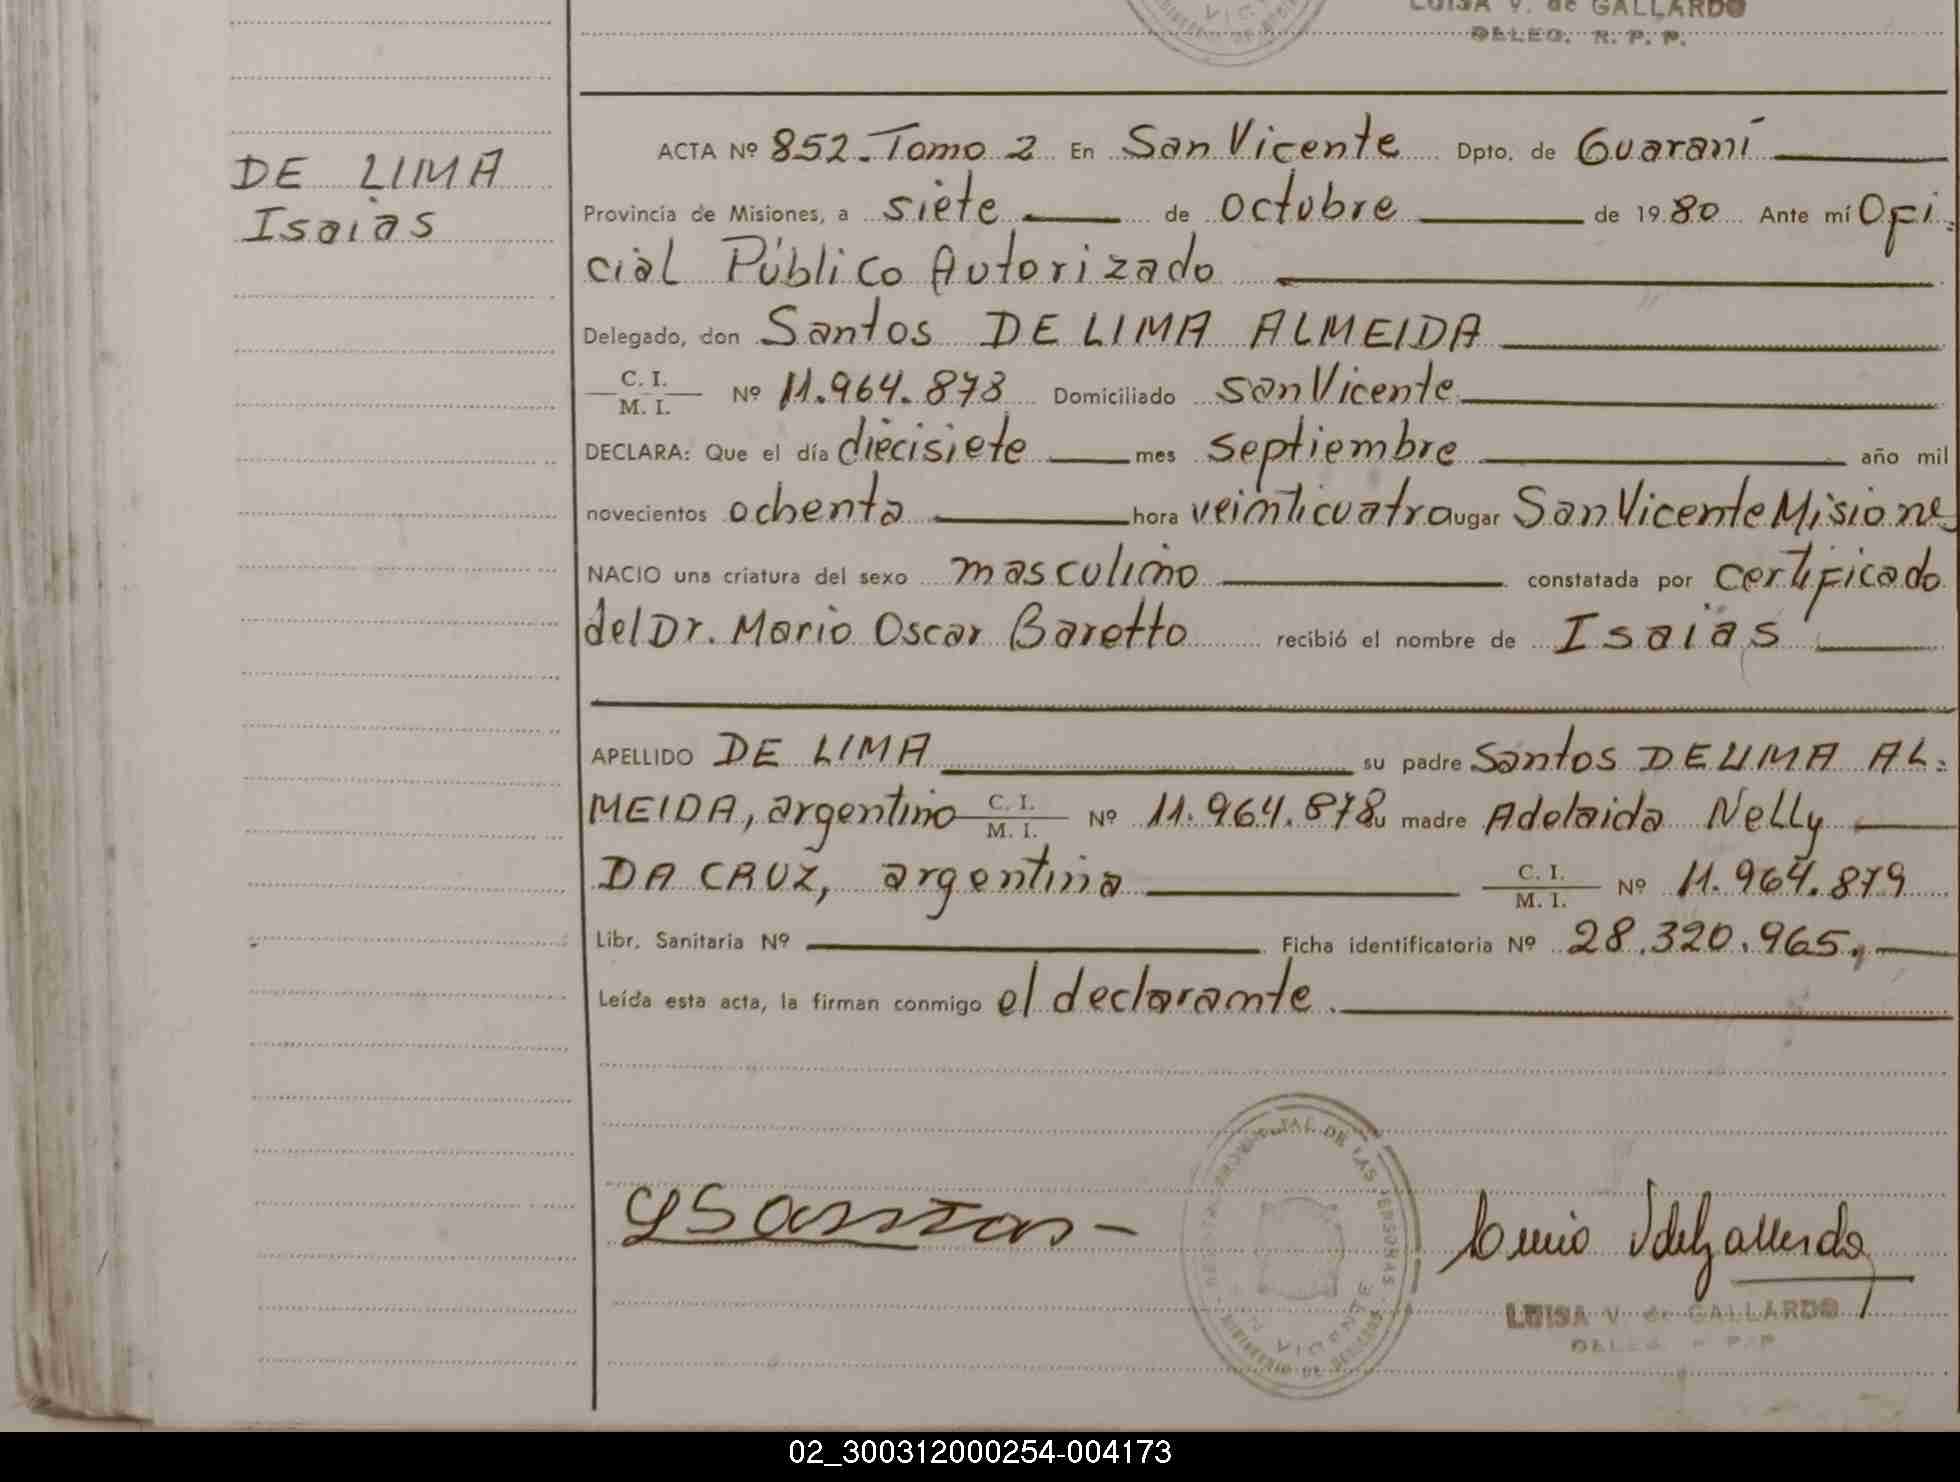 LUISA V. de GALLARDO
DELEG. R. P. P.
DE LIMA
Isaias
ACTA Nº 852. Tomo 2 En San Vicente Dpto. de Guaraní
Provincia de Misiones, a siete de octubre de 1980 Ante mí Ofi-
cial Público Autorizado
Delegado, don Santos DE LIMA ALMEIDA
C. I.
M. I. Nº 11.964.878 Domiciliado San Vicente
DECLARA: Que el día diecisiete mes septiembre año mil
novecientos ochenta hora veinticuatro ugar San Vicente Misiones
NACIO una criatura del sexo masculino constatada por certificado
del Dr. Mario Oscar Barotto recibió el nombre de Isaias
APELLIDO DE LIMA su padre Santos DE LIMA AL-
MEIDA, argentino C. I.
M. I. Nº 11.964.878 su madre Adelaida Nelly
DA CRUZ, argentina C. I.
M. I. Nº 11.964.879
Libr. Sanitaria Nº Ficha identificatoria Nº 28.320.965.
Leída esta acta, la firman conmigo el declarante.
LUISA V. de GALLARDO
DELEG. R. P. P.
02_300312000254-004173